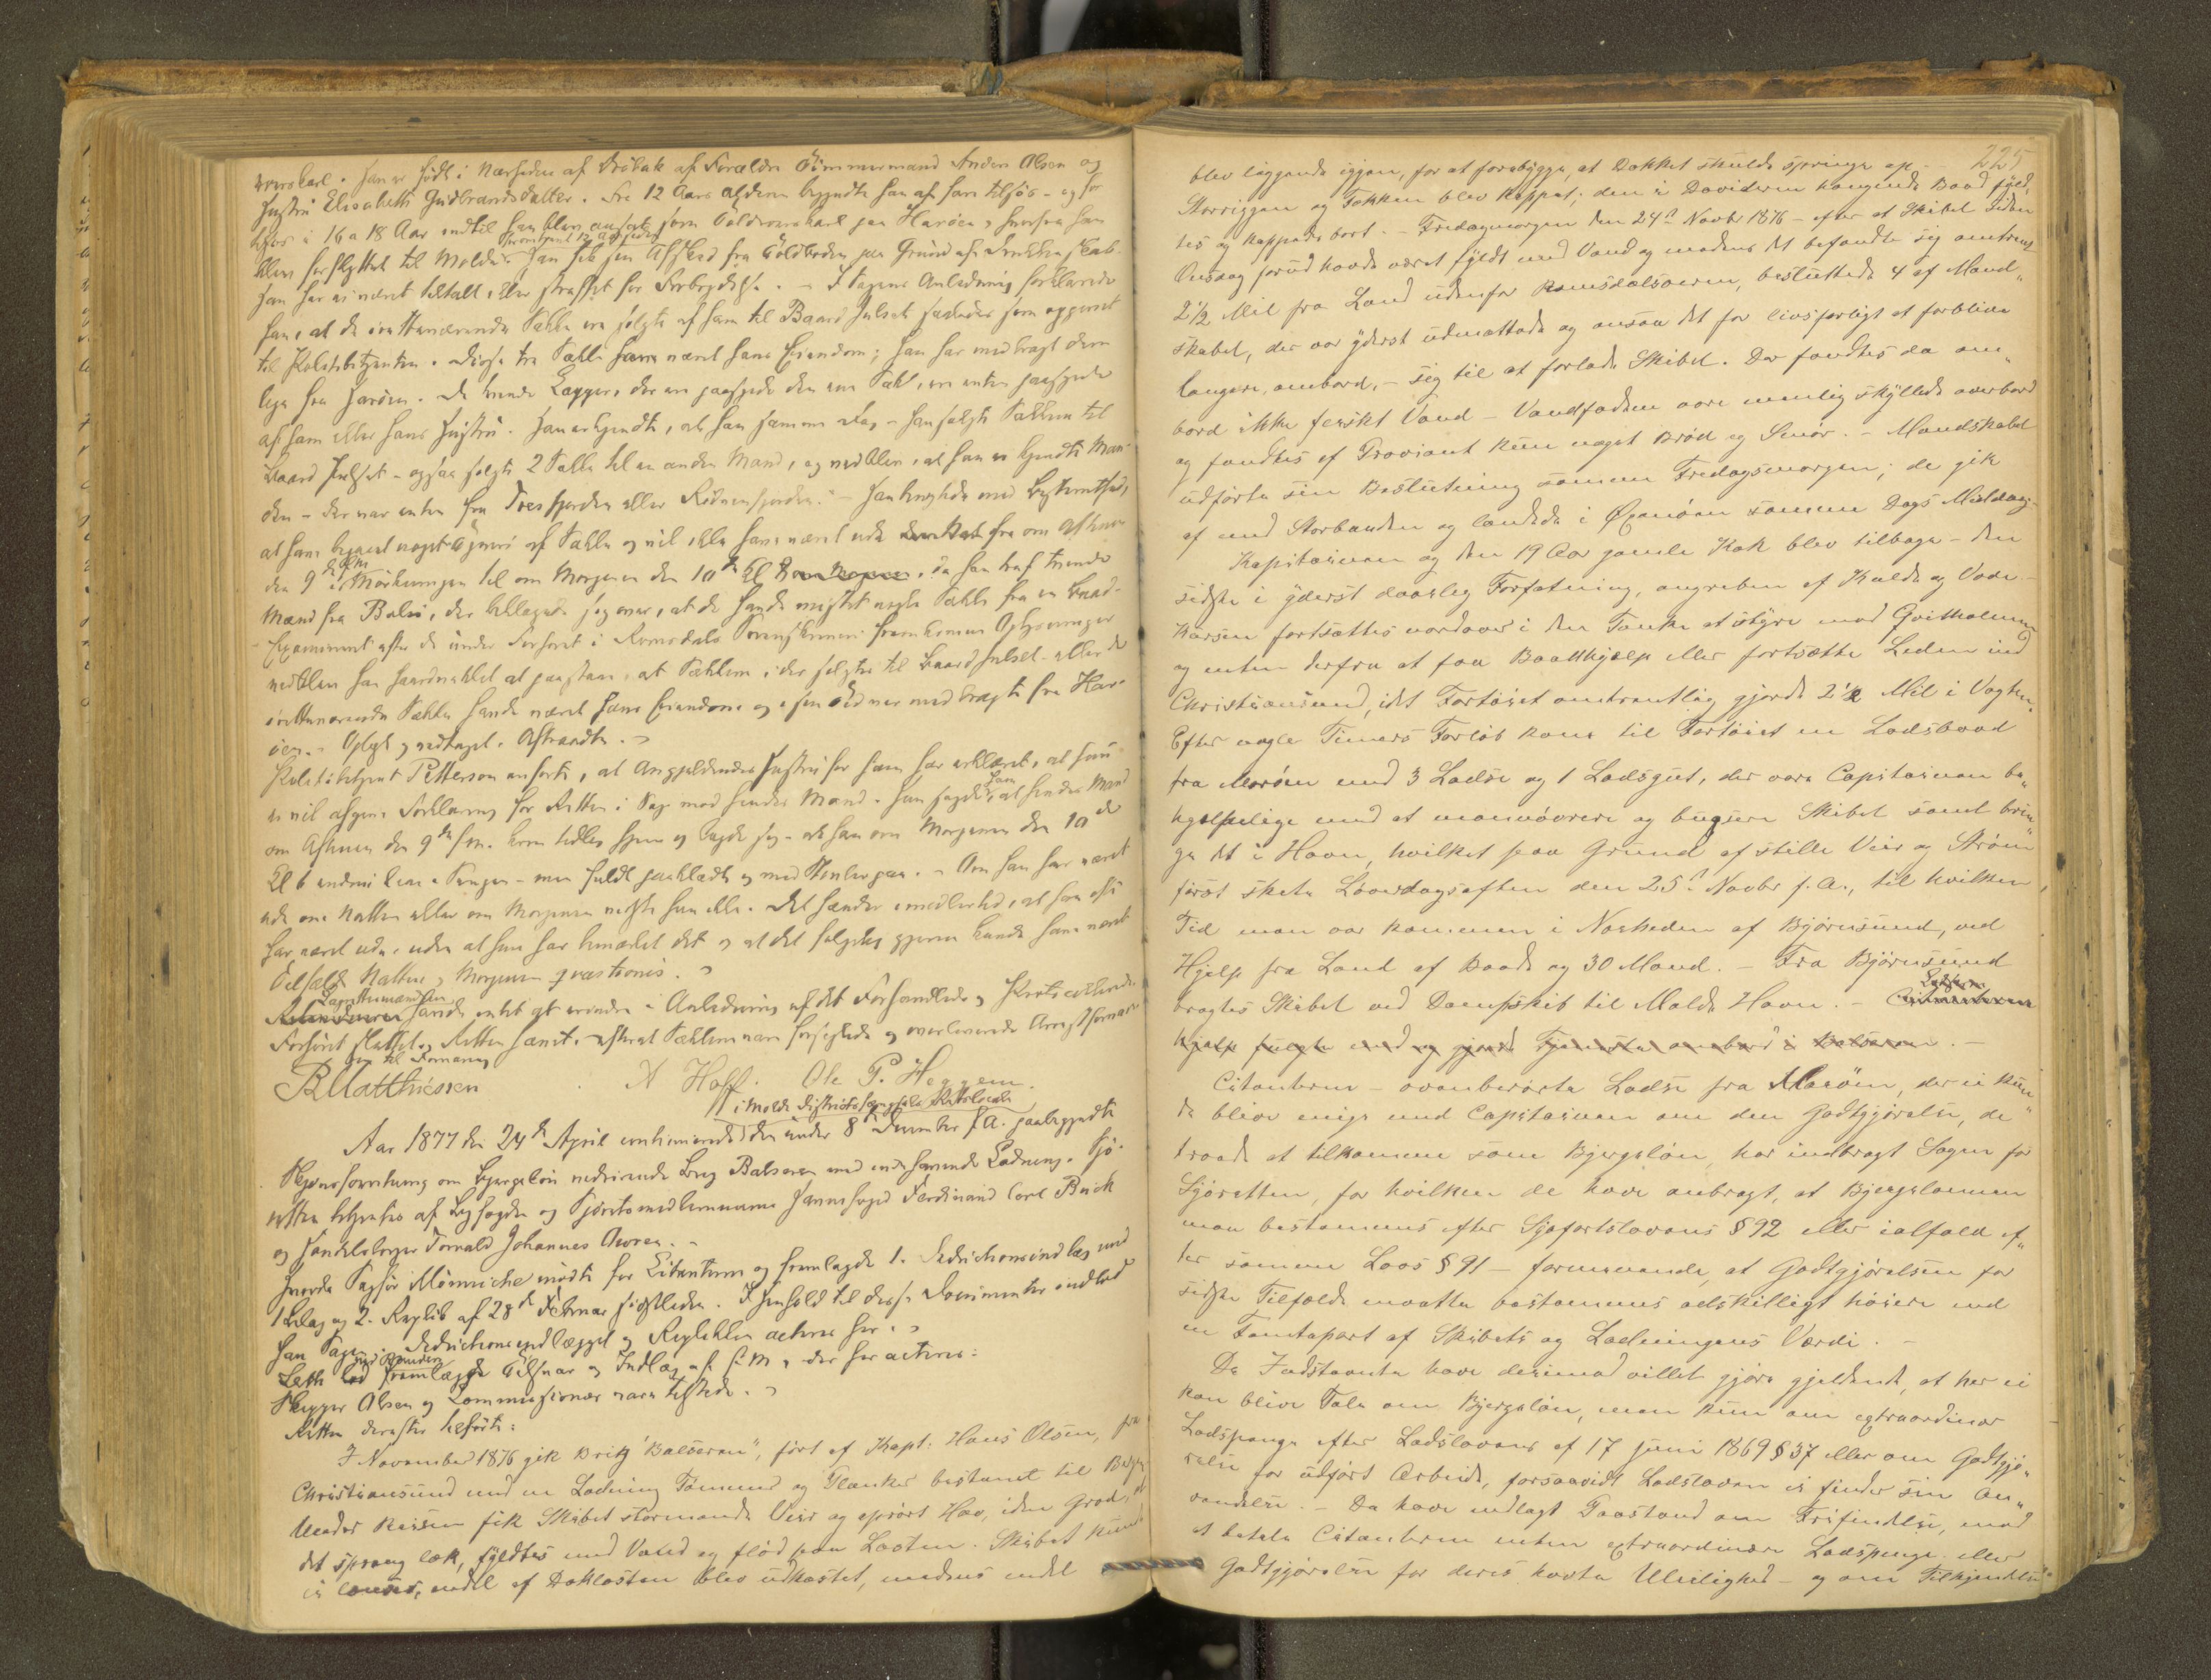 verskarl. Han er født i Nærheden af Drøbak af Forældre Tømmermand Anders Olsen og
Hustru Elisabeth Gudbrandsdatter. Fra 12 Aars Alderen begyndte han at fare tilsøs - og for
tilsøs i 16 a 18 Aar indtil han blev ansat som Toldroerskarl paa Harøen, hvorfra han
blev forflyttet til Molde. Han fik sin Afsked fra Toldboden paa Grund af Drukkenskab.
Han har ei været tiltalt eller straffet for Forbrydelse. - I Sagens Anledning forklarede
han, at de iretteværende Sække ere solgte af ham til Baard Julset saaledes som opgivet
til Politibetjenten. Disse tre Sække have været hans Eiendom; han har medbragt dem
lige fra Harøen. De tvende Lapper, der ere paasyede den ene Sæk, ere enten paasyede
af ham eller hans Hustru. Han erkjendte, at han samme Dag - han solgte Sækkene til
Baard Julset - ogsaa solgte 2 Sække til en anden Mand, og vedblev, at han ei kjendte Man-
den - der var enten fra Tresfjorden eller Rødvenfjorden. - Han benegtede med Bestemthed,
at have begaaet noget Tyveri af Sække og vil ikke have været ude fra om Aftenen
den 9de i Mørkningen til om Morgenen den 10de Kl 8, da han traf tvende
Mænd fra Bolsø, der beklagede sig over, at de havde mistet nogle Sække fra en Baad.
Examineret efter de under Forhøret i Romsdals Sorenskriveri fremkomne Oplysninger
vedblev han haardnakket at paastaa, at Sækkene, der solgtes til Baard Julset - eller de
iretteværende Sække havde været hans Eiendom og i sin Tid var medbragte fra Har-
øen. - Oplæst og vedtaget. Aftraadte. -
Politibetjent Petterson anførte, at Angjældendes Hustru for ham har erklæret, at hun
ei vil afgive Forklaring for Retten i Sag mod hendes Mand. Hun sagde, at hendes Mand
om Aftenen den 9de f.M. kom tidlig hjem og lagde sig - at han om Morgenen den 10de
Kl 6 endnu laa i Sengen - men fuldt paaklædt og med Støvler paa. - Om han har været
ude om Natten eller om Morgenen vidste hun ikke. Det hænder imidlertid, at han ofte
har været ude, uden at hun har bemærket det og at det følgelig gjerne kunde have været
Tilfælde Natten og Morgenen qvæstionis. -
Lagrettemændene havde intet at erindre i Anledning af det Forhandlede og Protocollerede.
Forhøret sluttet og Retten hævet, efterat Sækkene vare forseglede og overleverede Arrestforvareren
til Forvaring
B Matthiessen N Hoff. Ole P. Heggem.
i Molde Distriktsfængsels Retslocale
Aar 1877 den 24de April continueredes den under 8de December f.A. paabegyndte
Skjønsforretning om Bjergeløn vedrørende Brig Balsoran med indehavende Ladning. Sjø-
retten betjentes af Byfogden og Sjøretsmedlemmerne Havnefoged Ferdinand Carl Buck
og Handelsborger Torvald Johannes Owren. -
Hvorda Sagfør Mönniche mødte for Citanterne og fremlagde 1. Deductionsindlæg med
1 Bilag og 2. Replik af 28de Februar sidstleden. I Henhold til disse Documenter indlod
han Sagen. Deductionsindlægget og Replikken acteres her. -
Leth lod ved Bruden fremlægge Tilsvar og Indlæg af f.M., der her acteres:
Skipper Olsen og Commissionær vare tilstede. -
Retten derefter tilførte:
I November 1876 gik Brig "Balsoran", ført af Kapt: Hans Olsen, fra
Christiansund med en Ladning Tømmer og Planker bestemt til Bergen.
Under Reisen fik Skibet stormende Veir og oprørt Hav, i den Grad, at
det sprang læk, fyldtes med Vand og flød paa Lasten. Skibet kunde
ei lænses, endel af Dæklasten blev udkastet, medens endel
225
blev liggende igjen, for at forebygge, at Dækket skulde springe op.
Storriggen og Fokken blev kappet; den i Daviderne hængende Baad fyld-
tes og kappedes bort. - Fredagmorgen den 24de Novbr 1876 - efter at Skibet siden
Onsdag forud havde været fyldt med Vand og medens det befandt sig omtrent
2 1/2 Mil fra Land udenfor Romsdalsøerne, besluttede 4 af Mand-
skabet, der var yderst udmattede og ansaa det for livsfarligt at forblive
længere ombord, - sig til at forlade Skibet. Der fandtes da om-
bord ikke ferskt Vand - Vandfadene vare nemlig skyllede overbord
og fandtes af Proviant kun noget Brød og Smør. - Mandskabet
udførte sin Beslutning samme Fredagsmorgen; de gik
af med Storbaaden og landede i Øxenøen samme Dags Middag.
Kapitainen og den 19 Aar gamle Kok blev tilbage - den
sidste i yderst daarlig Forfatning, angreben af Kulde og Vaae.
Koursen fortsattes nordover i den Tanke at styre mod Qvitholmen
og enten derfra at faa Baadhjælp eller fortsætte Leden ind
Christiansund, idet Fartøiet omtrentlig gjorde 2 1/2 Mil i Vagten.
Efter nogle Timers Forløb kom til Fartøiet en Lodsbaad
fra Moøen med 3 Lodse og 1 Lodsgut, der vare Capitainen be-
hjælpelige med at manøvrere og bugsere Skibet samt brin-
ge det i Havn, hvilket paa Grund af stille Veir og Strøm
først skete Løverdagsaften den 25de Novbr f.A., til hvilken
Tid man var kommen i Nærheden af Bjørnsund, ved
Hjælp fra Land af Baade og 30 Mand. - Fra Bjørnsund
bragtes Skibet ved Dampskib til Molde Havn. - Lodsene
hjalp fulgte med og gjorde Tjeneste ombord i Balsoran. -
Citanterne - ovenberørte Lodse fra Moøen, der ei kun-
de blive enige med Capitainen om den Godtgjørelse, de
troede at tilkomme som Bjergeløn, har indbragt Sagen for
Sjøretten, for hvilken de have anbragt, at Bjergelønnen
maa bestemmes efter Sjøfartslovens § 92 eller ialfald ef-
ter samme Lovs § 91 - formenende, at Godtgjørelsen for
sidste Tilfælde maatte bestemmes adskilligt høiere end
en Femtepart af Skibets og Ladningens Værdi. -
De Indstevnte have derimod villet gjøre gjeldende, at her ei
kan blive Tale om Bjergeløn, men kun om extraordinær
Lodspenge efter Lodslovens af 17 Juni 1869 § 37 eller om Godtgjø-
relse for udført Arbeide, forsaavidt Lodsloven ei finder sin An-
vendelse. - De have nedlagt Paastand om Frifindelse, mod
at betale Citanterne enten extraordinære Lodspenge eller
Godtgjørelse for deres havte Uleilighed - og om Tilkjendelse